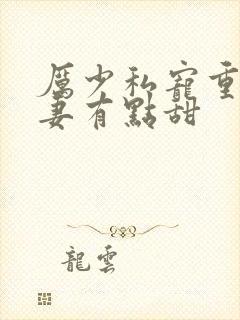 厲少私寵重
妻有點甜
龍雲